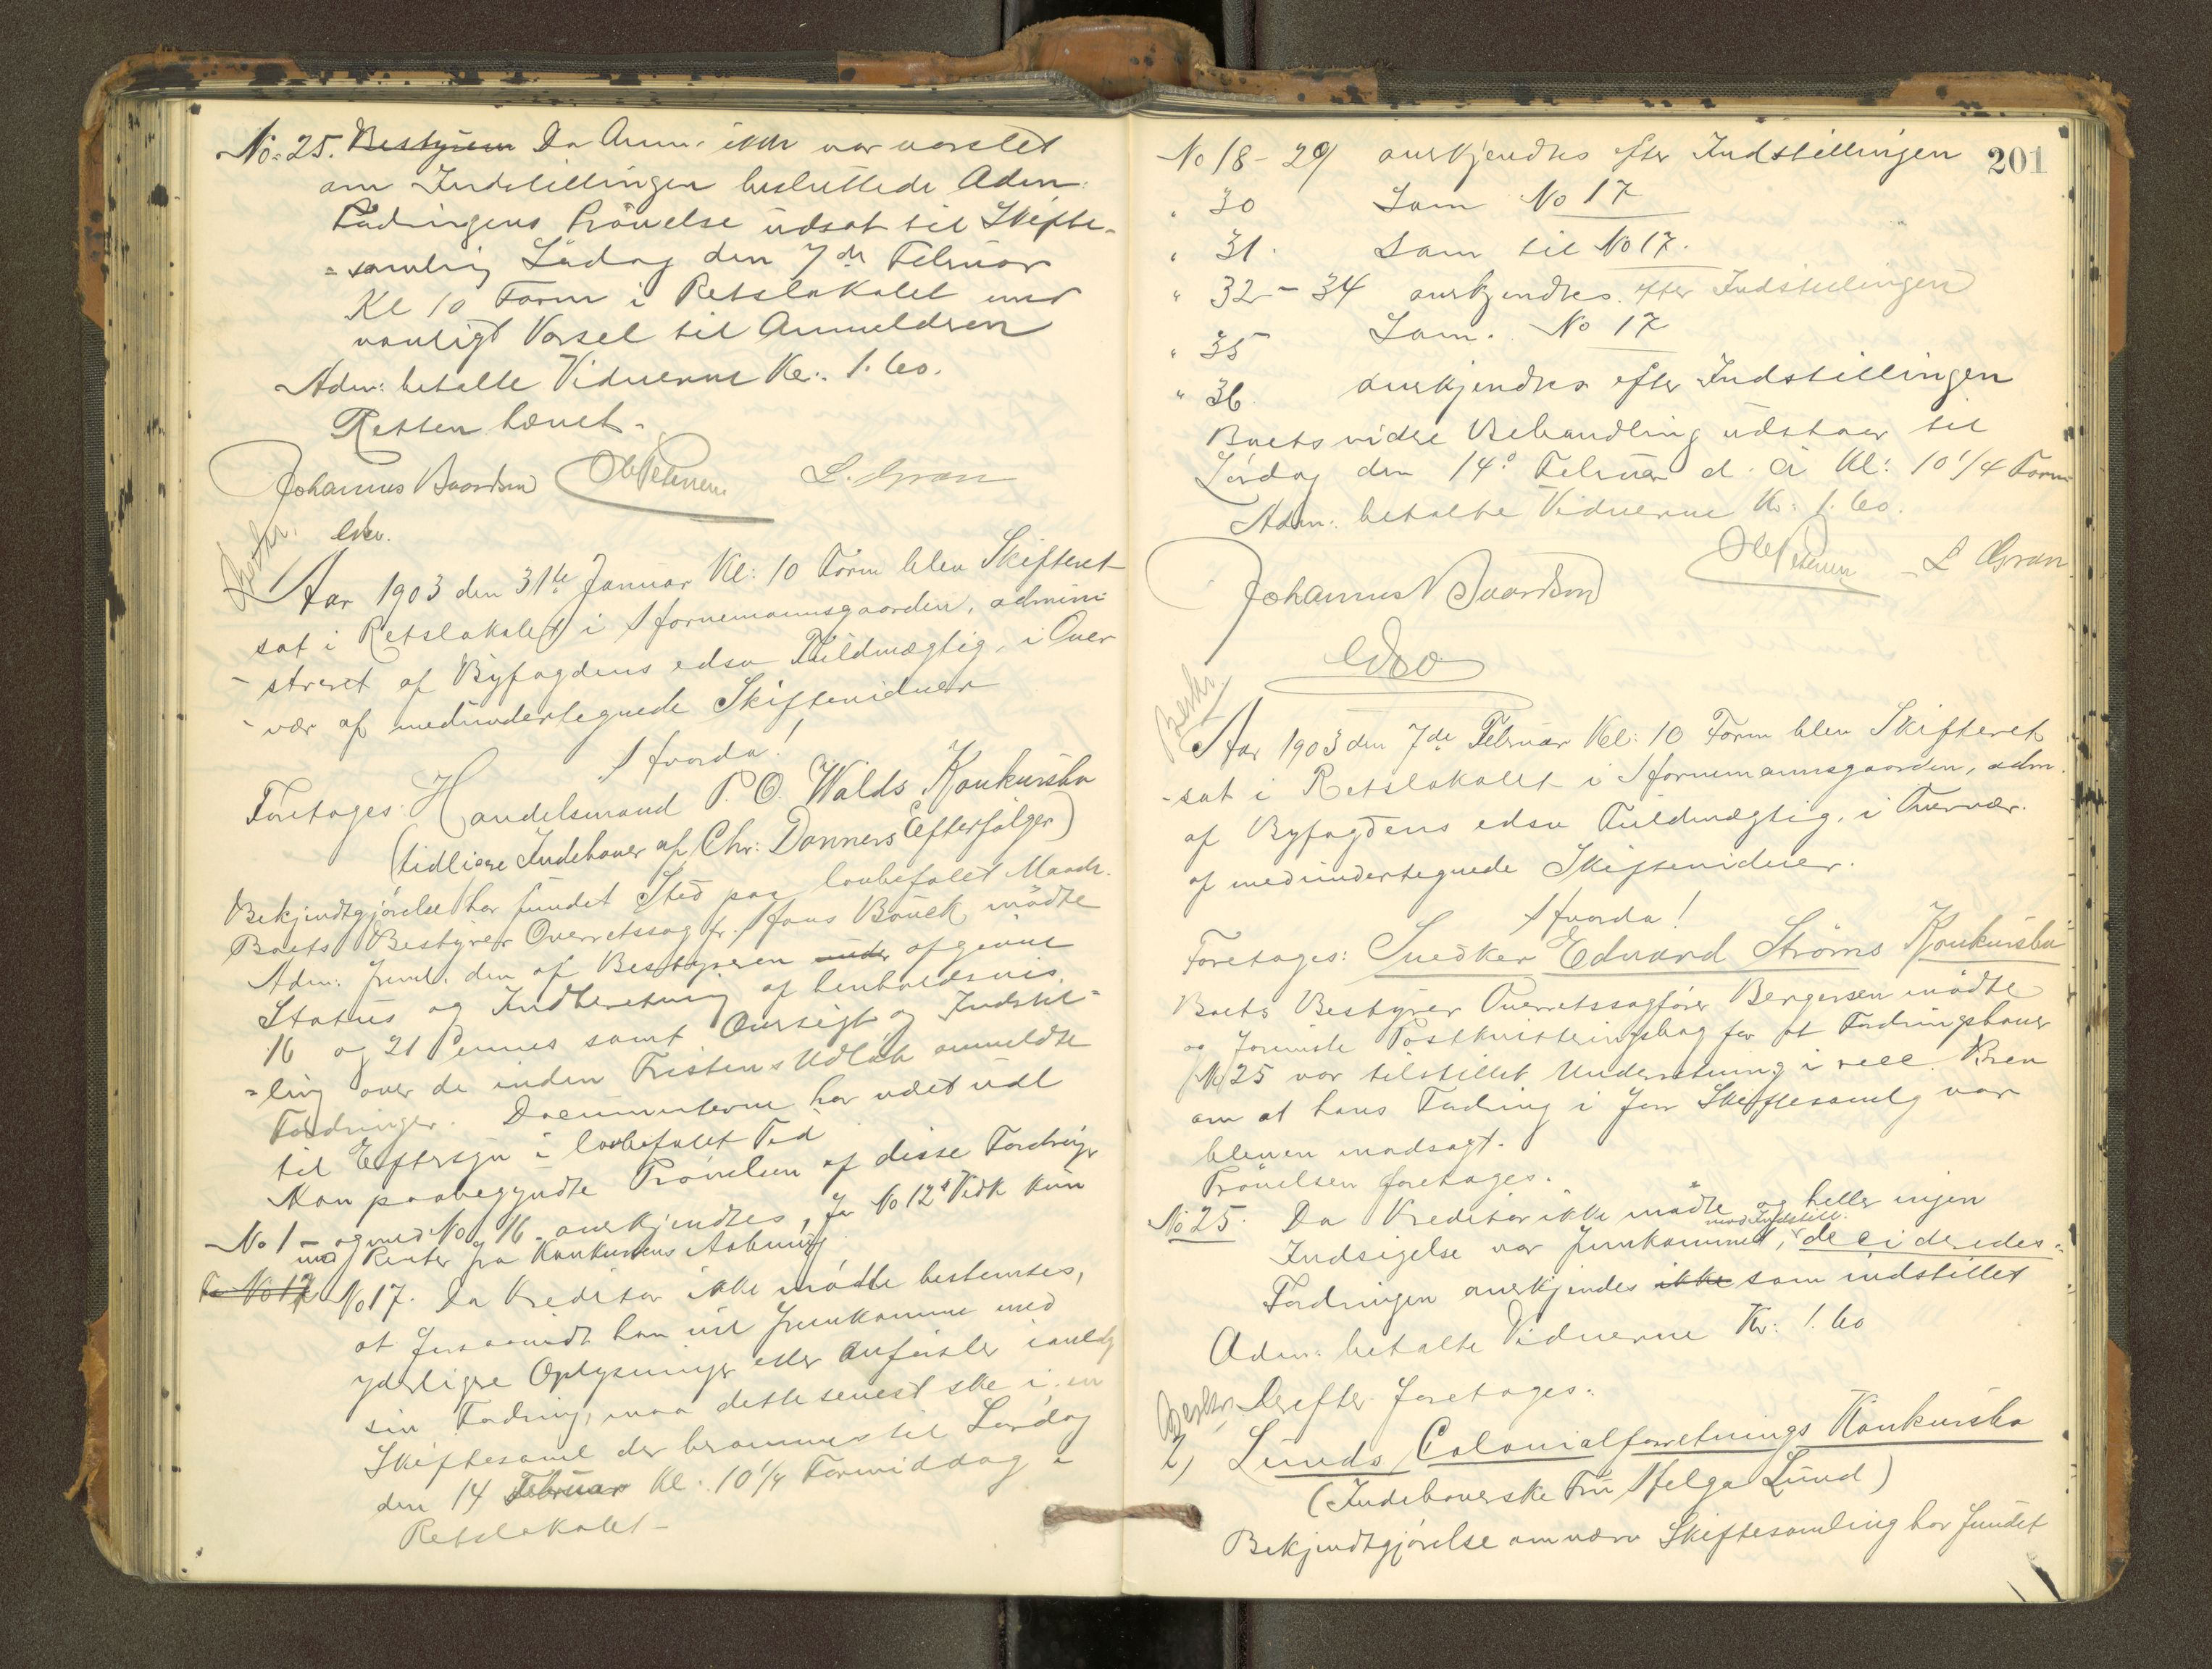 No: 25. Bestyrern Da Anm. ikke var varslet
om Indstillingen besluttede Adm:
Fordringens Prövelse udsat til Skifte-
=samling Lördag den 7de Februar
Kl 10 Form i Retslokalet med
vanligt Varsel til Anmelderen
Adm: betalte Vidnerne Kr: 1.60.
Retten hævet.
Johannes Baardsen Ole Petersen L. Gran
edsv.
Beskr.
Aar 1903 den 31te Januar Kl: 10 Form blev Skifteret
sat i Retslokalet i Hornemannsgaarden, admini-
-streret af Byfogdens edsv Fuldmægtig, i Over
-vær af medundertegnede Skiftevidner
Hvorda!
Foretoges: Handelsmand P. O. Walds Konkursbo
(tidligere Indehaver af Chr: Donners Efterfølger)
Bekjendtgjørelse har fundet Sted paa lovbefalet Maade.
Boets Bestyrer Overretssagfr. Hans Bauck mödte
Adm: freml. den af Bestyreren under afgivne
Status og Indberetning af henholdsvis
16 og 21 dennes samt Oversigt og Indstil=
=ling over de inden Fristens Udløb anmeldte
Fordringer. Documenterne har været udl
til Eftersyn i lovbefalet Tid
Man paabegyndte Prövelsen af disse Fordringer
No 1 - og med No 16 anerkjendtes, for No 12s Vedk kun
med Renter fra Konkursens Aabning
No 17 No 17. Da Kreditor ikke mödte bestemtes,
at forsaavidt han vil fremkomme med
yderligere Oplysninger eller Anförsler
sin Fordring, maa dette senest ske i en
Skiftesaml der berammes til Lørdag
den 14 Februar Kl: 10 1/4 Formiddag i
Retslokalet -
201
No 18 - 29 anerkjendtes efter Indstillingen
" 30 Som No 17
" 31. Som til No 17.
" 32 - 34 anerkjendtes efter Indstillingen
" 35 Som. No 17
" 36. anerkjendtes efter Indstillingen
Boets vidre Behandling udstaar til
Lördag den 14de Februar d. A Kl: 10 1/4 Form
Adm: betalte Vidnerne Kr: 1.60.
Ole Petersen L Gran
Johannes Baardsen
edsv
Beskr.
Aar 1903 den 7de Februar Kl: 10 Form blev Skifteret
sat i Retslokalet i Hornemannsgaarden, adm.
af Byfogdens edsv Fuldmægtig, i Overvær.
af medundertegnede Skiftevidner.
Hvorda!
Foretoges: Snedker Edvard Ströms Konkursbo
Boets Bestyrer Overretssagförer Bergersen mödte
og foreviste Postkvitteringsbog for at Fordringshaver
No 25 var tilstillet Underretning i rec. Brev
om at hans Fordring i forr Skiftesamlg var
bleven modsagt.
Prövelsen foretoges.
No 25. Da Kreditor ikke mödte og heller ingen
Indsigelse var fremkommet mod Indstill:, decideredes:
Fordringen anerkjendes ikke som indstillet
Adm: betalte Vidnerne Kr: 1.60
Beskr. Derefter foretoges:
2) Lunds Colonialforretnings Konkursbo
(Indehaverske Fru Helga Lund)
Bekjendtgjørelse om nærv Skiftesamling har fundet